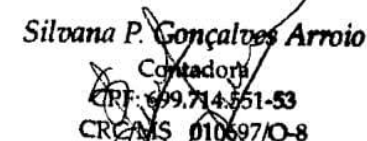 Silvana P. Gonçalves Arroio
Contadora
CPF: 699.714.551-53
CRC/MS 010697/O-8